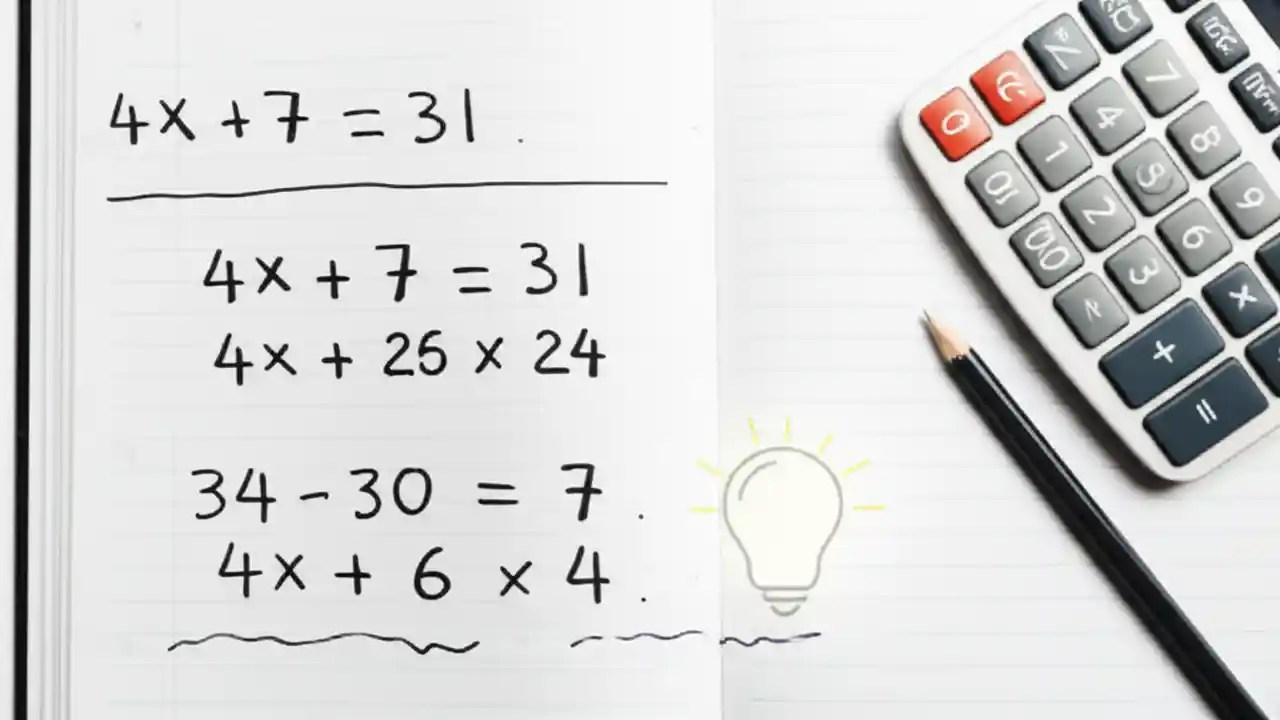 4x + 7 = 31 .
4x + 7 = 31
4x + 25 x 24
34 - 30 = 7 .
4x + 6 x 4 .
7
4
1
0
8
5
2
9
6
3
+
x
=